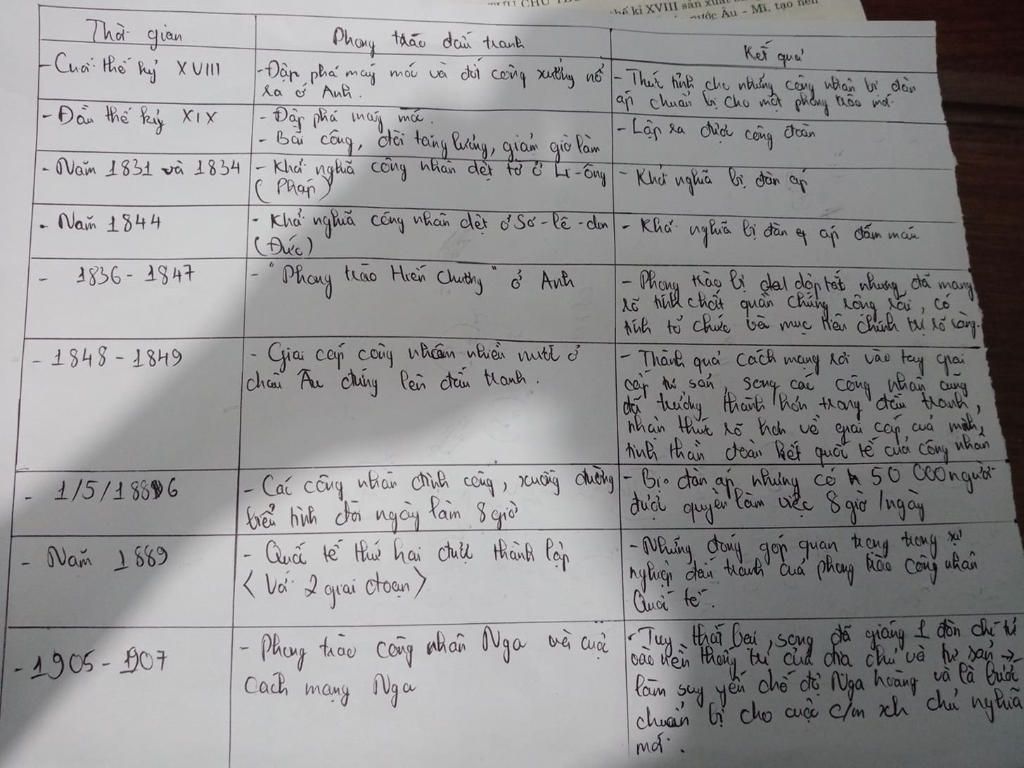 hế kỉ XVIII sản xuất
nước Âu - Mĩ, tạo nên
Thời gian
Phong trào đấu tranh
Kết quả
- Cuối thế kỷ XVIII
- Đập phá máy móc và đốt công xưởng nổ
ra ở Anh.
- Thức tỉnh cho những công nhân bị đàn
áp chuẩn bị cho một phong trào mới.
- Đầu thế kỷ XIX
- Đập phá máy móc.
- Bãi công, đòi tăng lương, giảm giờ làm
- Lập ra được công đoàn
- Năm 1831 và 1834
- Khởi nghĩa công nhân dệt tơ ở Li-ông
(Pháp)
- Khởi nghĩa bị đàn áp
- Năm 1844
- Khởi nghĩa công nhân dệt ở Sơ-lê-din
(Đức)
- Khởi nghĩa bị đàn áp đẫm máu
- 1836 - 1847
- "Phong trào Hiến Chương" ở Anh
- Phong trào bị dập tắt nhưng đã mang
rõ tính chất quần chúng rộng rãi, có
tính tổ chức và mục tiêu chính trị rõ ràng.
- 1848 - 1849
- Giai cấp công nhân nhiều nước ở
châu Âu đứng lên đấu tranh.
- Thành quả cách mạng rơi vào tay giai
cấp tư sản song các công nhân cũng
đã trưởng thành hơn trong đấu tranh,
nhận thức rõ hơn về giai cấp của mình,
tinh thần đoàn kết quốc tế của công nhân
- 1/5/1886
- Các công nhân đình công, xuống đường
biểu tình đòi ngày làm 8 giờ
- Bị đàn áp nhưng có 50 000 người
được quyền làm việc 8 giờ/ngày
- Năm 1889
- Quốc tế thứ hai được thành lập
< Với 2 giai đoạn >
- Những đóng góp quan trọng trong sự
nghiệp đấu tranh của phong trào công nhân
Quốc tế.
- 1905 - 1907
- Phong trào công nhân Nga và cuộc
Cách mạng Nga
- Tuy thất bại, song đã giáng 1 đòn chí tử
vào nền thống trị của địa chủ và tư sản →
làm suy yếu chế độ Nga hoàng và là bước
chuẩn bị cho cuộc c/m xh chủ nghĩa
mới.